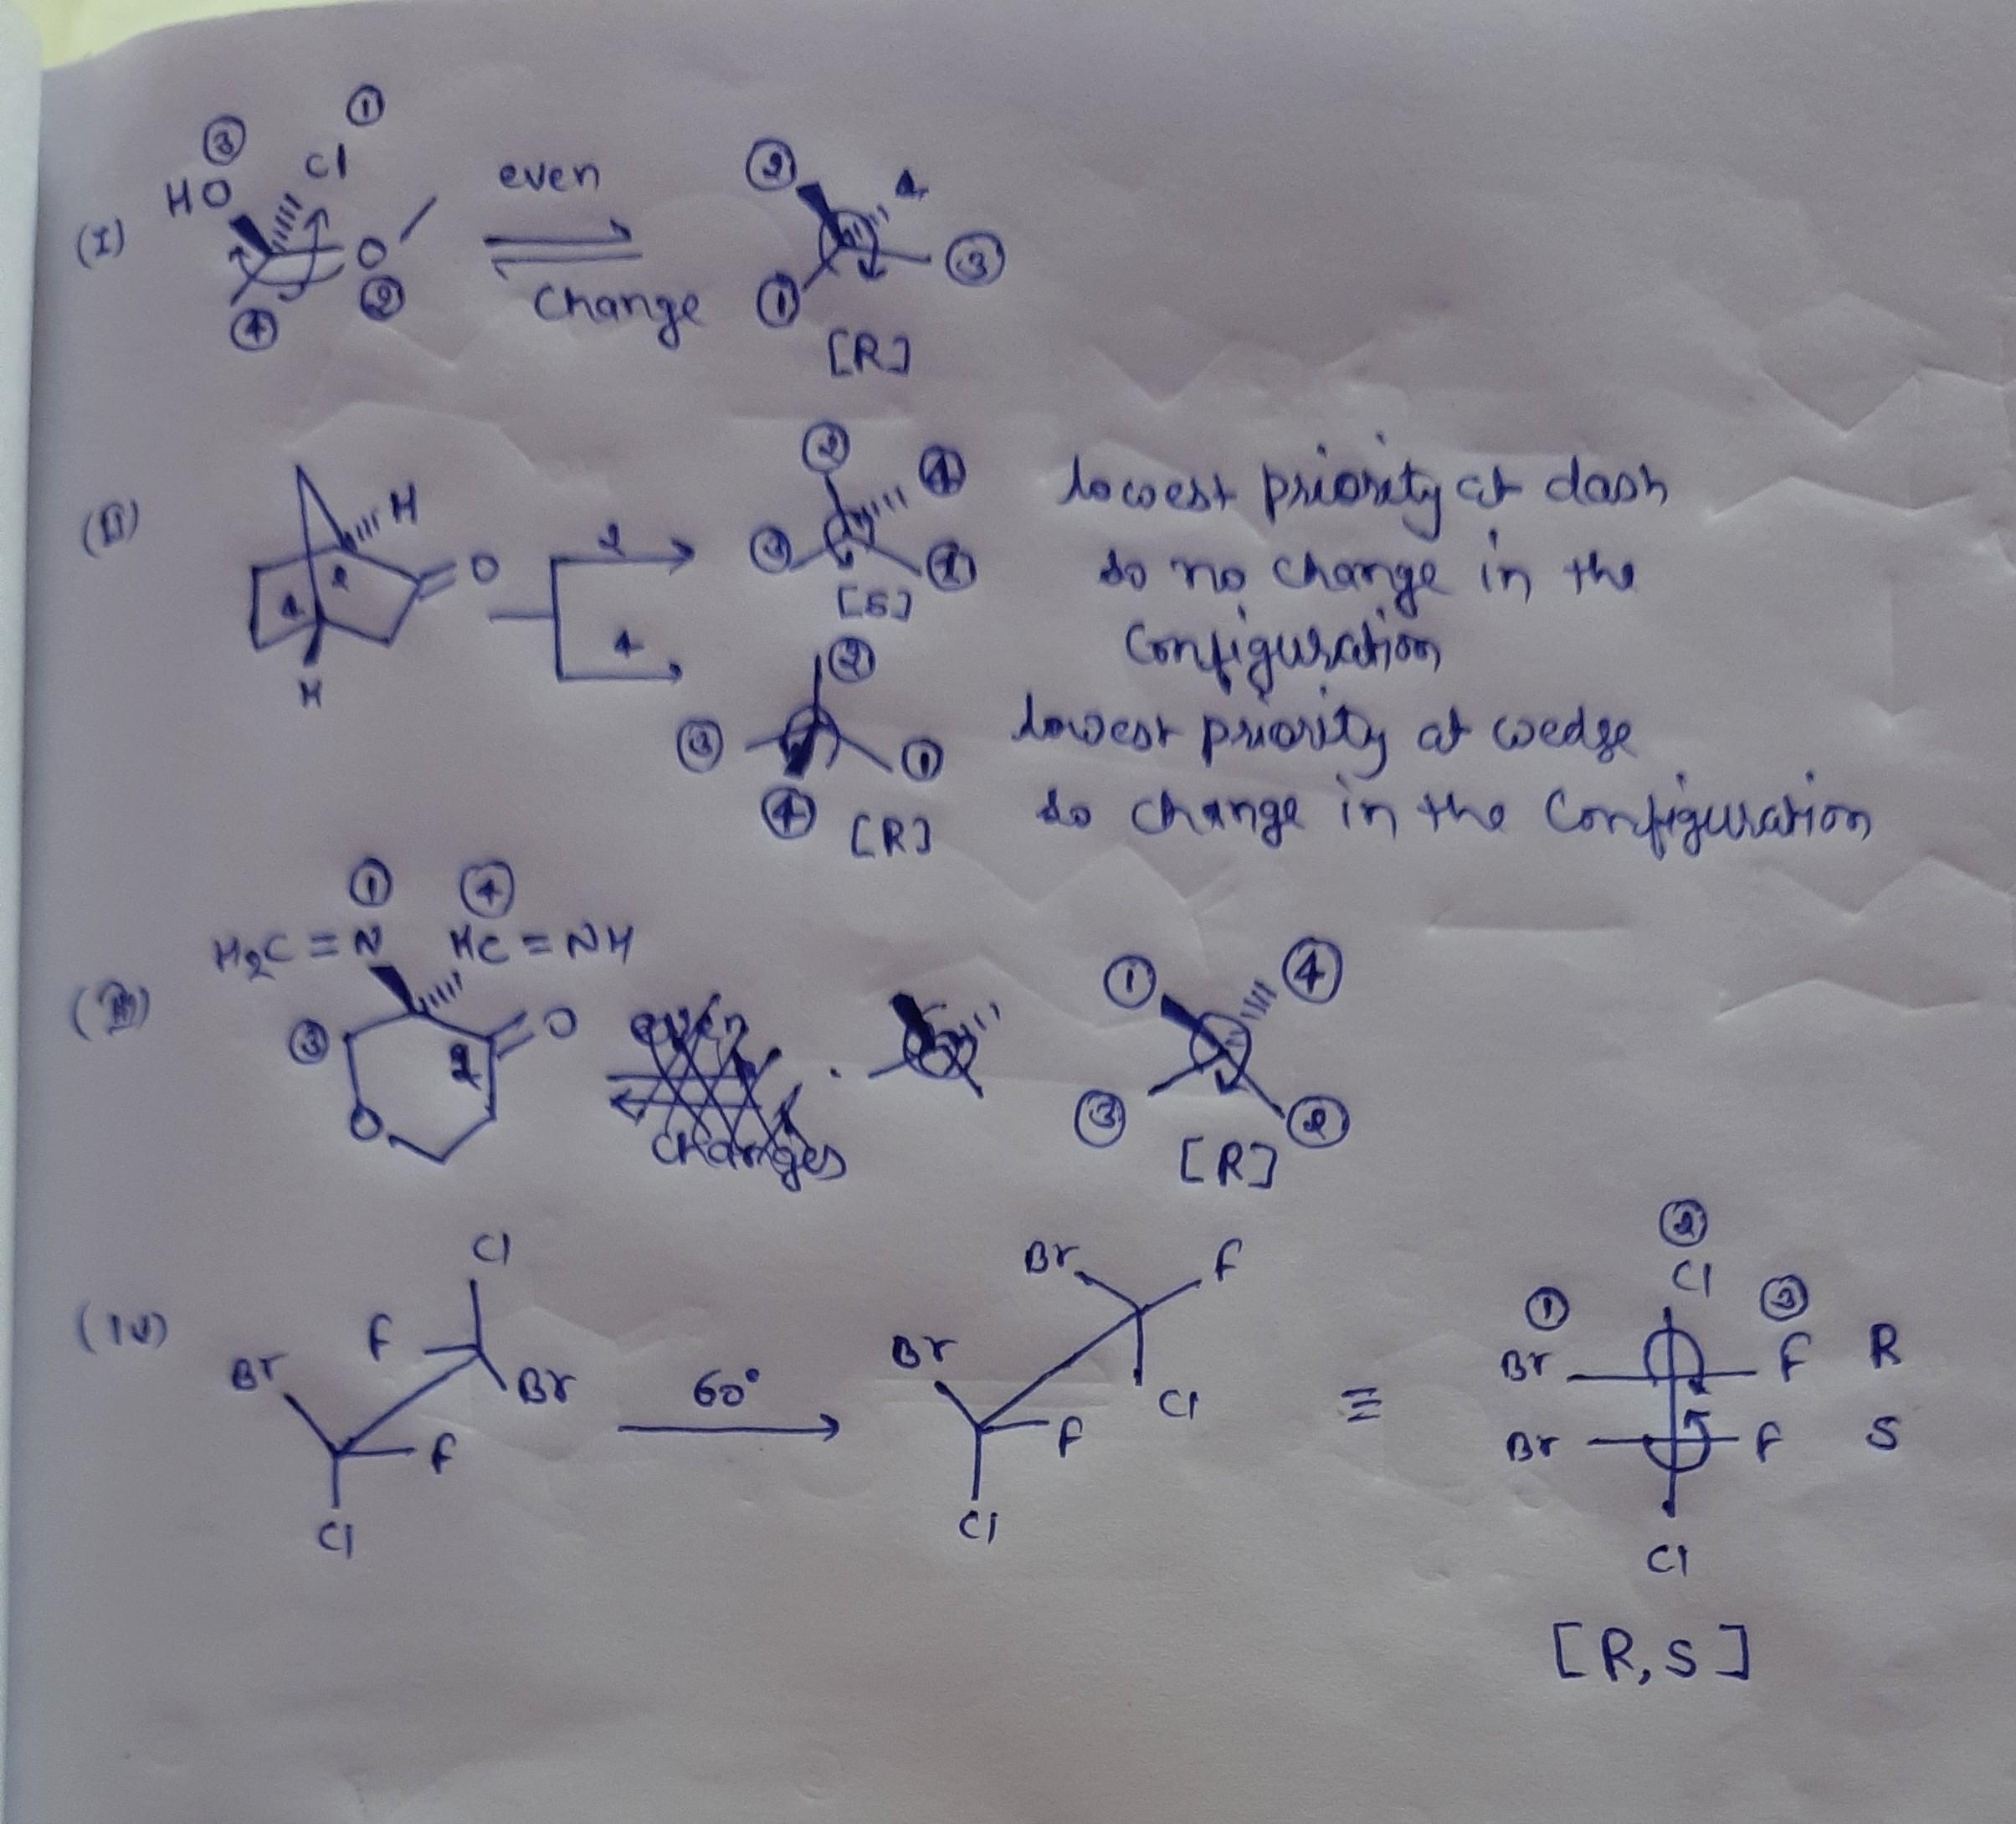 ① 
③ Cl
HO even ② 4
(I) O ③
② Change ①
④ [R]
② ④ lowest priority at dash
(II) H 2 ③ ①
O so no change in the
1 2 [S]
4 ② configuration
H ③ ① lowest priority at wedge
④ [R] so change in the configuration
① ④
H2C = N HC = NH ① ④
(III) ③ O even
2
O changes ③ ②
[R]
Cl Br F ②
Cl
(IV) F ① ③
Br Br 60° Br Br F R
F F Cl ≡ Br F S
Cl Cl Cl
[R,S]